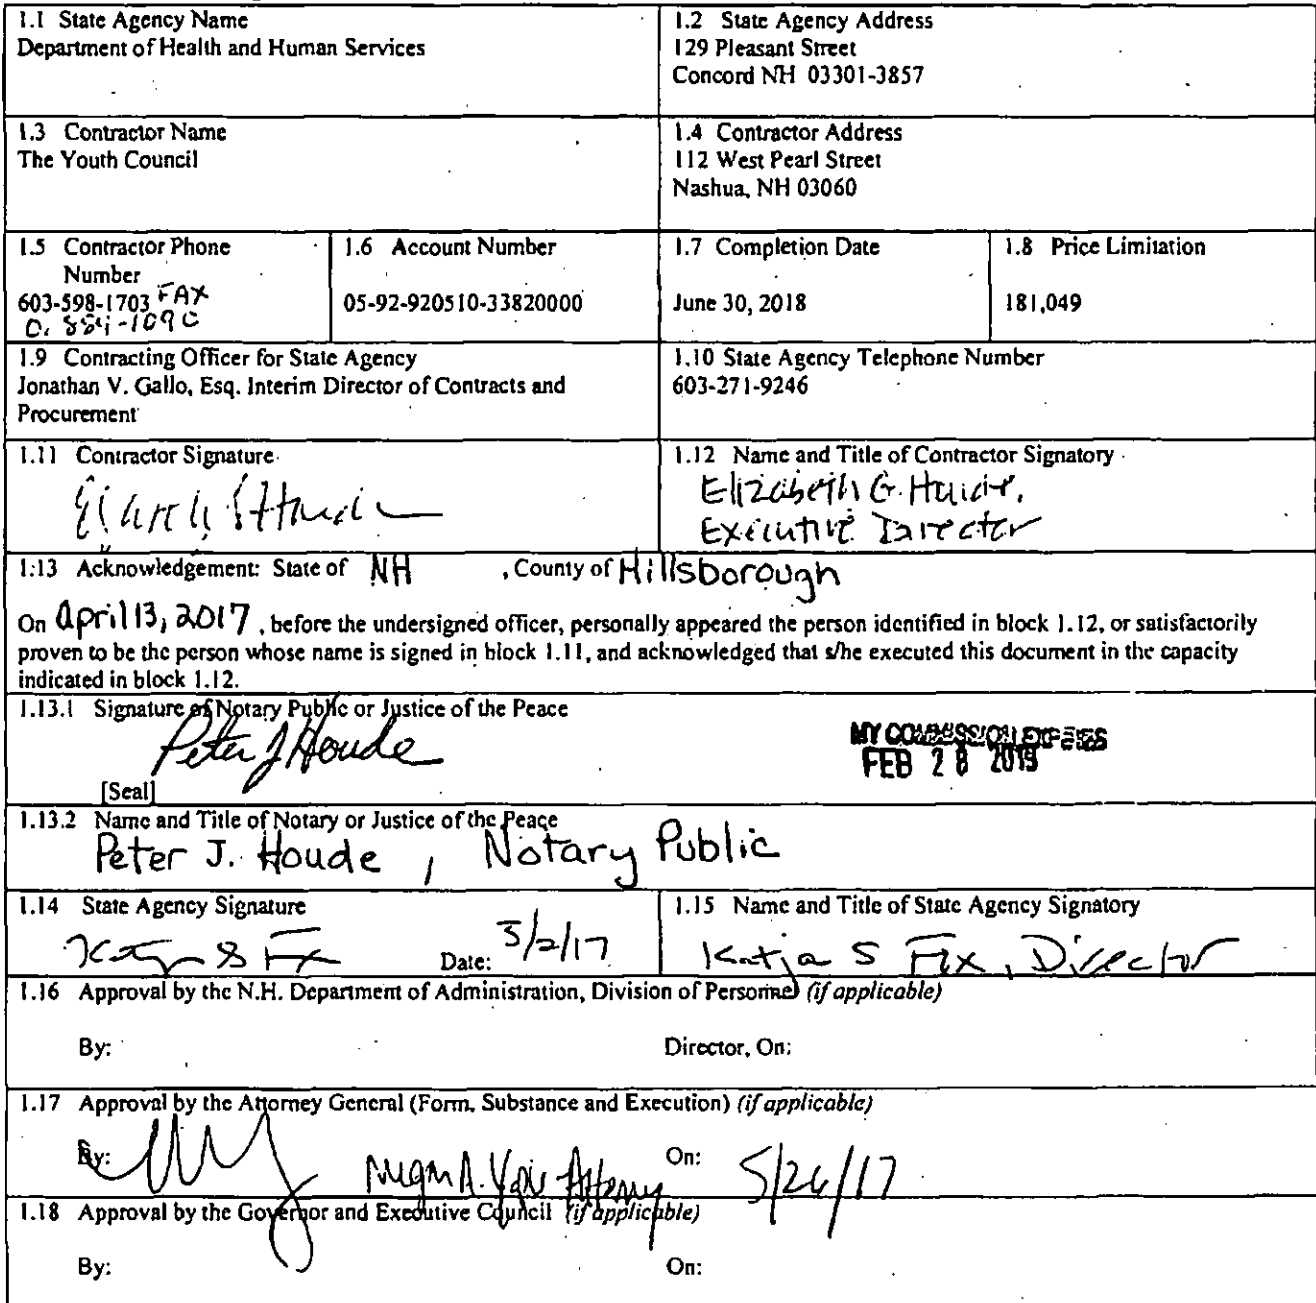 1.1 State Agency Name
Department of Health and Human Services
1.2 State Agency Address
129 Pleasant Street
Concord NH 03301-3857
1.3 Contractor Name
The Youth Council
1.4 Contractor Address
112 West Pearl Street
Nashua, NH 03060
1.5 Contractor Phone
Number
603-598-1703 FAX
1.6 Account Number
05-92-920510-33820000
1.7 Completion Date
June 30, 2018
1.8 Price Limitation
181,049
1.9 Contracting Officer for State Agency
Jonathan V. Gallo, Esq. Interim Director of Contracts and
Procurement
1.10 State Agency Telephone Number
603-271-9246
1.11 Contractor Signature
1.12 Name and Title of Contractor Signatory
Elizabeth G. Houde,
Executive Director
1.13 Acknowledgement: State of NH , County of Hillsborough
On April 13, 2017 , before the undersigned officer, personally appeared the person identified in block 1.12, or satisfactorily
proven to be the person whose name is signed in block 1.11, and acknowledged that s/he executed this document in the capacity
indicated in block 1.12.
1.13.1 Signature of Notary Public or Justice of the Peace
Peter J Houde
MY COMMISSION EXPIRES
FEB 28 2019
[Seal]
1.13.2 Name and Title of Notary or Justice of the Peace
Peter J. Houde , Notary Public
1.14 State Agency Signature
Date: 5/2/17
1.15 Name and Title of State Agency Signatory
Katja S Fox, Director
1.16 Approval by the N.H. Department of Administration, Division of Personnel (if applicable)
By:
Director, On:
1.17 Approval by the Attorney General (Form, Substance and Execution) (if applicable)
By: Attorney
On: 5/26/17
1.18 Approval by the Governor and Executive Council (if applicable)
By:
On: